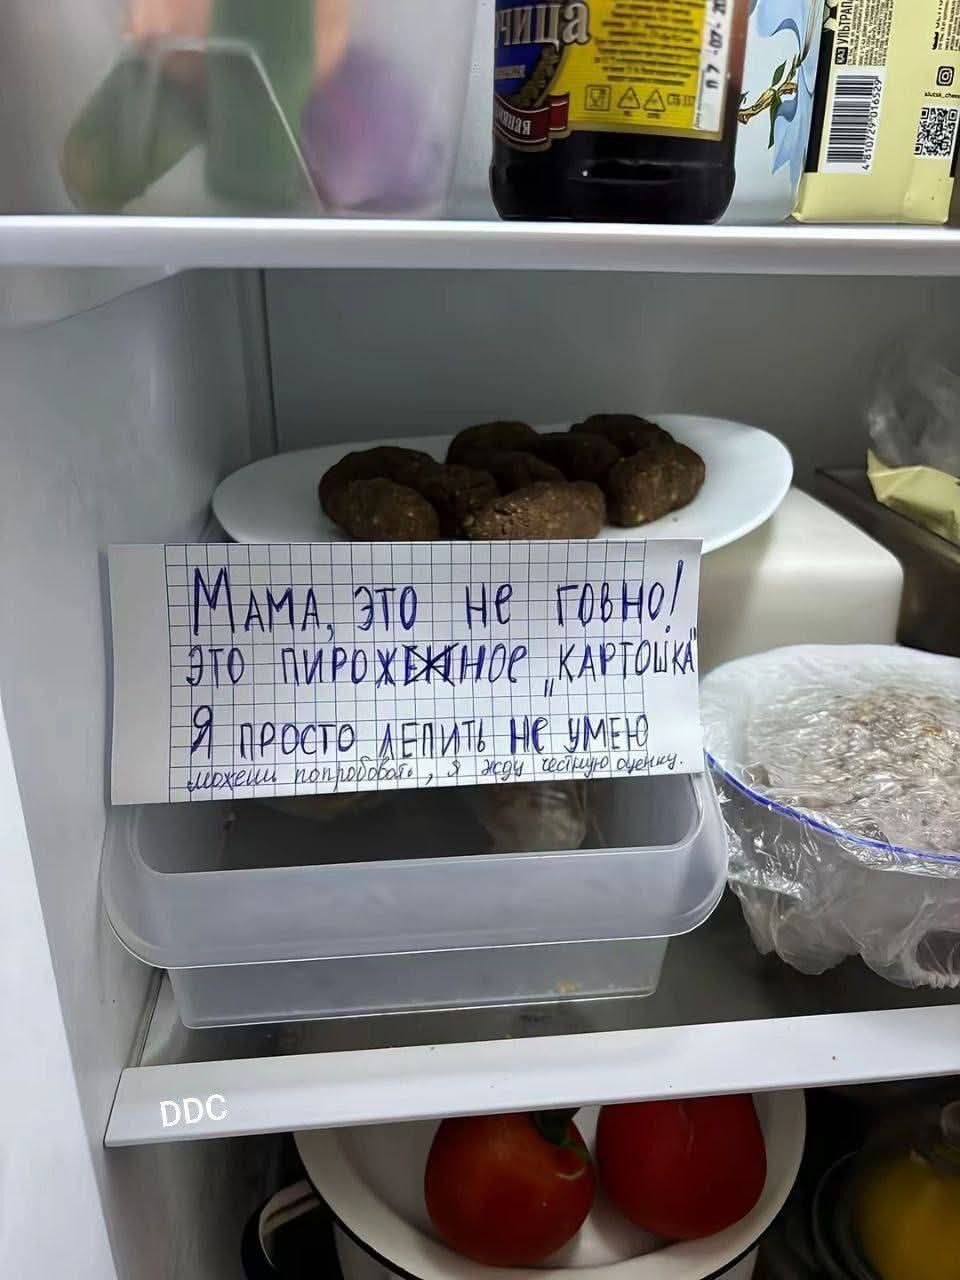 чица
СТБ
ная
УЛЬТРАПА
4810729016529
МАМА, ЭТО НЕ ГОВНО!
ЭТО ПИРОЖНОЕ „КАРТОШКА"
Я ПРОСТО ЛЕПИТЬ НЕ УМЕЮ
можешь попробовать, я жду честную оценку.
DDC